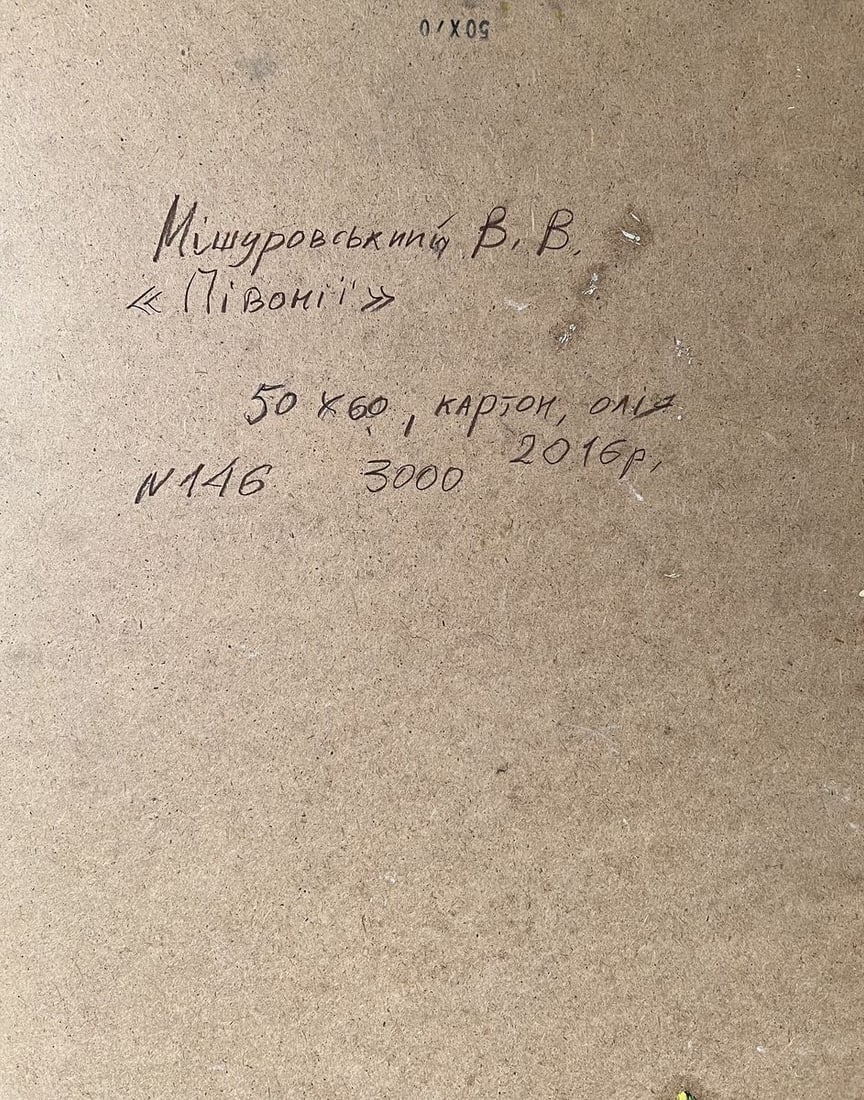 Мішуровський В. В.
« Півонії »
50 х 60, картон, олія
2016р,
N146 3000